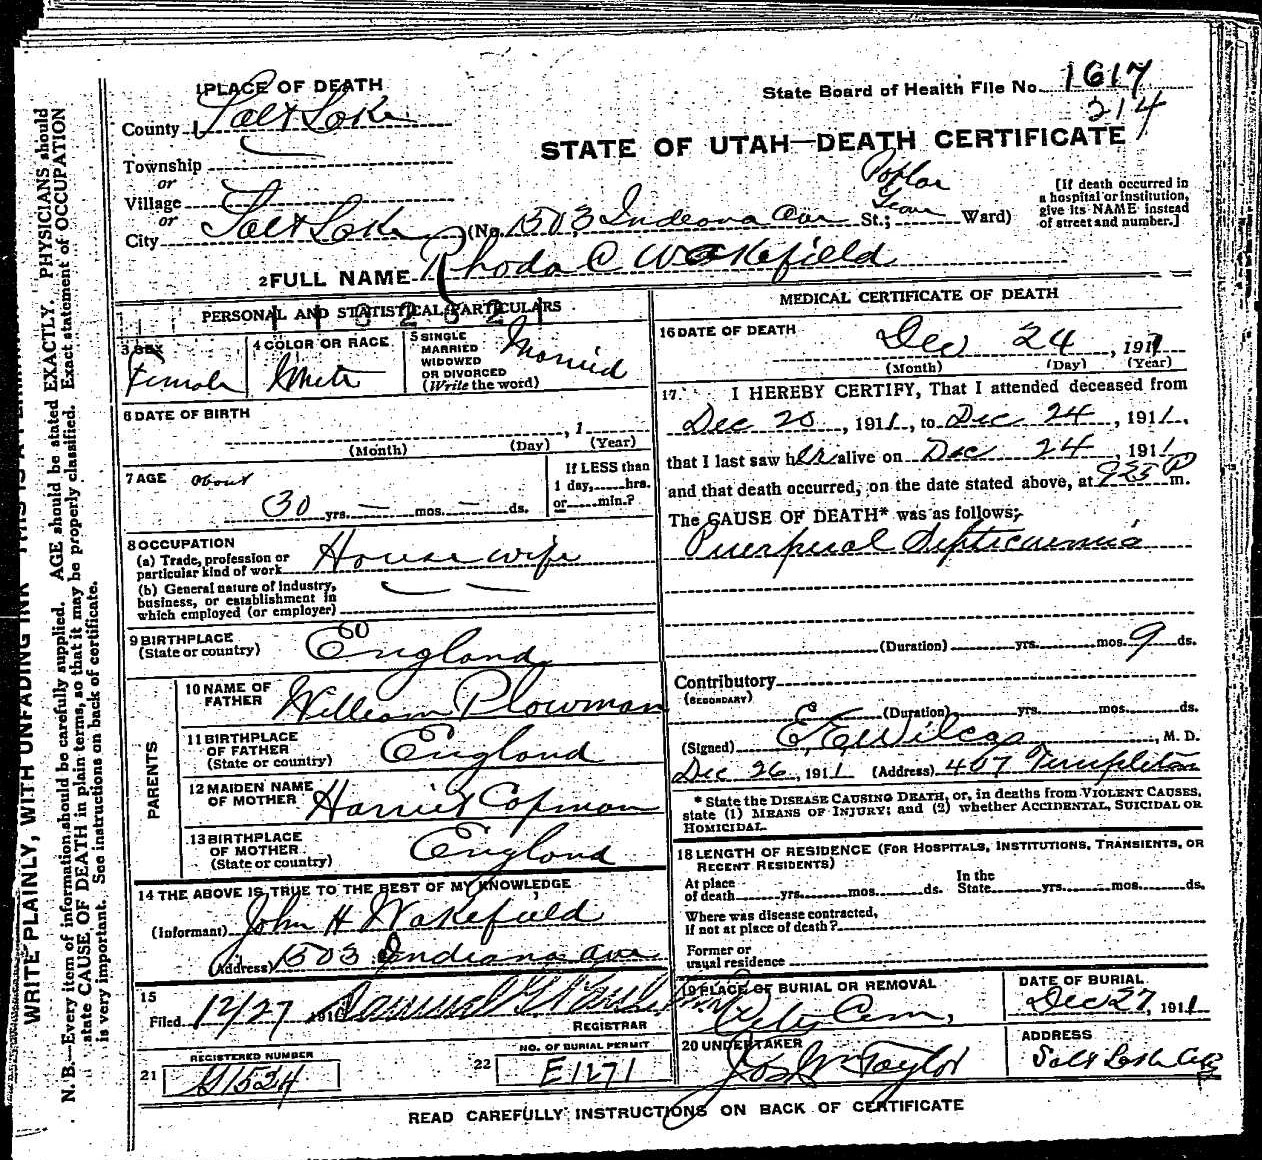 1 PLACE OF DEATH
State Board of Health File No. 1617
214
County Salt Lake
STATE OF UTAH—DEATH CERTIFICATE
Township
or
Village
or
City Salt Lake (No. 1503 Indiana Ave St.; Poplar Grove Ward)
[If death occurred in a hospital or institution, give its NAME instead of street and number.]
2 FULL NAME Rhoda C Wakefield
PERSONAL AND STATISTICAL PARTICULARS
3 SEX Female
4 COLOR OR RACE White
5 SINGLE MARRIED WIDOWED OR DIVORCED (Write the word) Married
6 DATE OF BIRTH
, 1
(Month) (Day) (Year)
7 AGE about
30 yrs. — mos. — ds.
If LESS than 1 day, hrs. or min.?
8 OCCUPATION
(a) Trade, profession or particular kind of work Housewife
(b) General nature of industry, business, or establishment in which employed (or employer)
9 BIRTHPLACE (State or country) England
60
PARENTS
10 NAME OF FATHER William Plowman
11 BIRTHPLACE OF FATHER (State or country) England
12 MAIDEN NAME OF MOTHER Harriet Copman
13 BIRTHPLACE OF MOTHER (State or country) England
14 THE ABOVE IS TRUE TO THE BEST OF MY KNOWLEDGE
(Informant) John H Wakefield
(Address) 1503 Indiana Ave
15
Filed 12/27, 191 Samuel G
REGISTRAR
REGISTERED NUMBER
21 G1524
NO. OF BURIAL PERMIT
22 E1271
MEDICAL CERTIFICATE OF DEATH
16 DATE OF DEATH
Dec 24, 1911
(Month) (Day) (Year)
17. I HEREBY CERTIFY, That I attended deceased from
Dec 20, 1911, to Dec 24, 1911,
that I last saw her alive on Dec 24, 1911
and that death occurred, on the date stated above, at 925 P m.
The CAUSE OF DEATH* was as follows:
Puerperal Septicaemia
(Duration) yrs. mos. 9 ds.
Contributory
(SECONDARY)
(Duration) yrs. mos. ds.
(Signed) E E Wilcox, M. D.
Dec 26, 1911 (Address) 407 Templeton
* State the DISEASE CAUSING DEATH, or, in deaths from VIOLENT CAUSES, state (1) MEANS OF INJURY; and (2) whether ACCIDENTAL, SUICIDAL OR HOMICIDAL.
18 LENGTH OF RESIDENCE (FOR HOSPITALS, INSTITUTIONS, TRANSIENTS, OR RECENT RESIDENTS)
At place of death yrs. mos. ds. In the State yrs. mos. ds.
Where was disease contracted, if not at place of death?
Former or usual residence
19 PLACE OF BURIAL OR REMOVAL
City Cem,
DATE OF BURIAL
Dec 27, 1911
20 UNDERTAKER
Jos Wm Taylor
ADDRESS
Salt Lake City
READ CAREFULLY INSTRUCTIONS ON BACK OF CERTIFICATE
N. B.—Every item of information should be carefully supplied. AGE should be stated EXACTLY. PHYSICIANS should
state CAUSE OF DEATH in plain terms, so that it may be properly classified. Exact statement of OCCUPATION
is very important. See instructions on back of certificate.
WRITE PLAINLY, WITH UNFADING INK